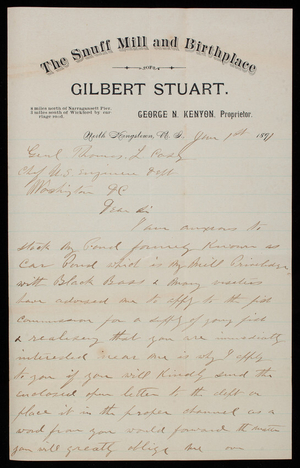 The Snuff Mill and Birthplace
—OF—
GILBERT STUART.
6 miles north of Narragansett Pier.
5 miles south of Wickford by car-
riage road.
GEORGE N. KENYON, Proprietor.
North Kingstown, R. I. Jan 1st 1891
Genl Thomas L Casey
Chf U.S. Engineer Dept
Washington DC
Dear Sir
I am anxious to
stock my Pond formerly known as
Car Pond which is my Mill Privilege
with Black Bass & many visitors
have advised me to apply to the fish
commission for a supply of young fish
& realizing that you are immediately
interested near me is why I apply
to you if you will kindly send the
enclosed open letter to the dept or
place it in the proper channel as a
word from you would forward the matter
you will greatly oblige me